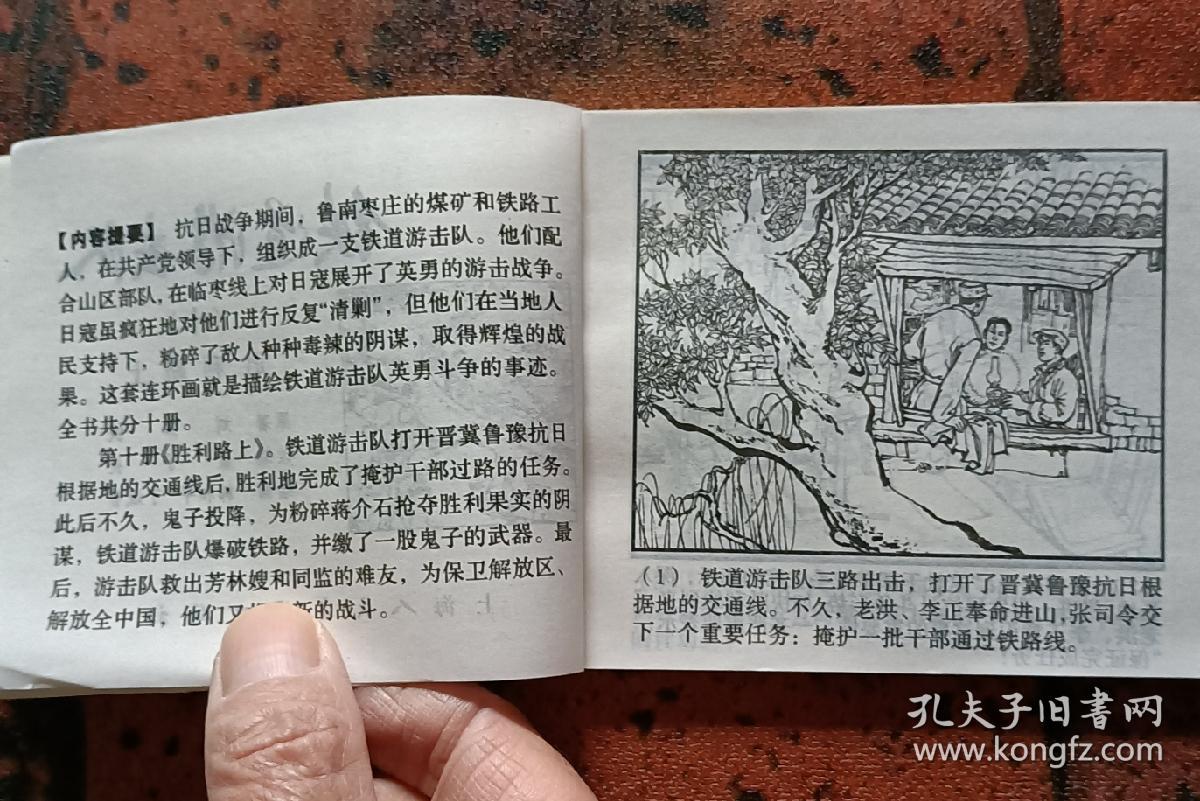 【内容提要】 抗日战争期间，鲁南枣庄的煤矿和铁路工
人，在共产党领导下，组织成一支铁道游击队。他们配
合山区部队，在临枣线上对日寇展开了英勇的游击战争。
日寇虽疯狂地对他们进行反复“清剿”，但他们在当地人
民支持下，粉碎了敌人种种毒辣的阴谋，取得辉煌的战
果。这套连环画就是描绘铁道游击队英勇斗争的事迹。
全书共分十册。
第十册《胜利路上》。铁道游击队打开晋冀鲁豫抗日
根据地的交通线后，胜利地完成了掩护干部过路的任务。
此后不久，鬼子投降，为粉碎蒋介石抢夺胜利果实的阴
谋，铁道游击队爆破铁路，并缴了一股鬼子的武器。最
后，游击队救出芳林嫂和同监的难友，为保卫解放区、
解放全中国，他们又新的战斗。
（1） 铁道游击队三路出击，打开了晋冀鲁豫抗日根
据地的交通线。不久，老洪、李正奉命进山，张司令交
下一个重要任务：掩护一批干部通过铁路线。
孔夫子旧書网
www.kongfz.com